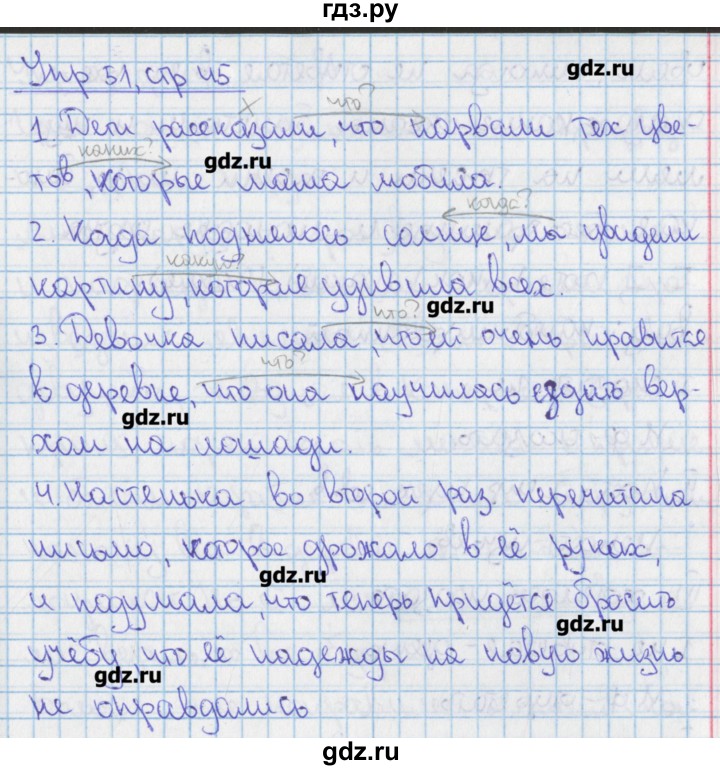 гдз.ру
Упр 51, стр 45
gdz.ru
что?
1. Дети рассказали, что нарвали тех цве-
каких?
gdz.ru
тов, которые мама любила.
когда?
2. Когда поднялось солнце, мы увидели
какую?
картину, которая удивила всех.
gdz.ru
что?
3. Девочка писала, что ей очень нравится
что?
в деревне, что она научилась ездить вер-
gdz.ru
хом на лошади.
4. Настенька во второй раз перечитала
письмо, которое дрожало в её руках,
gdz.ru
и подумала, что теперь придётся бросить
gdz.ru
учёбу, что её надежды на новую жизнь
gdz.ru
не оправдались
gdz.ru